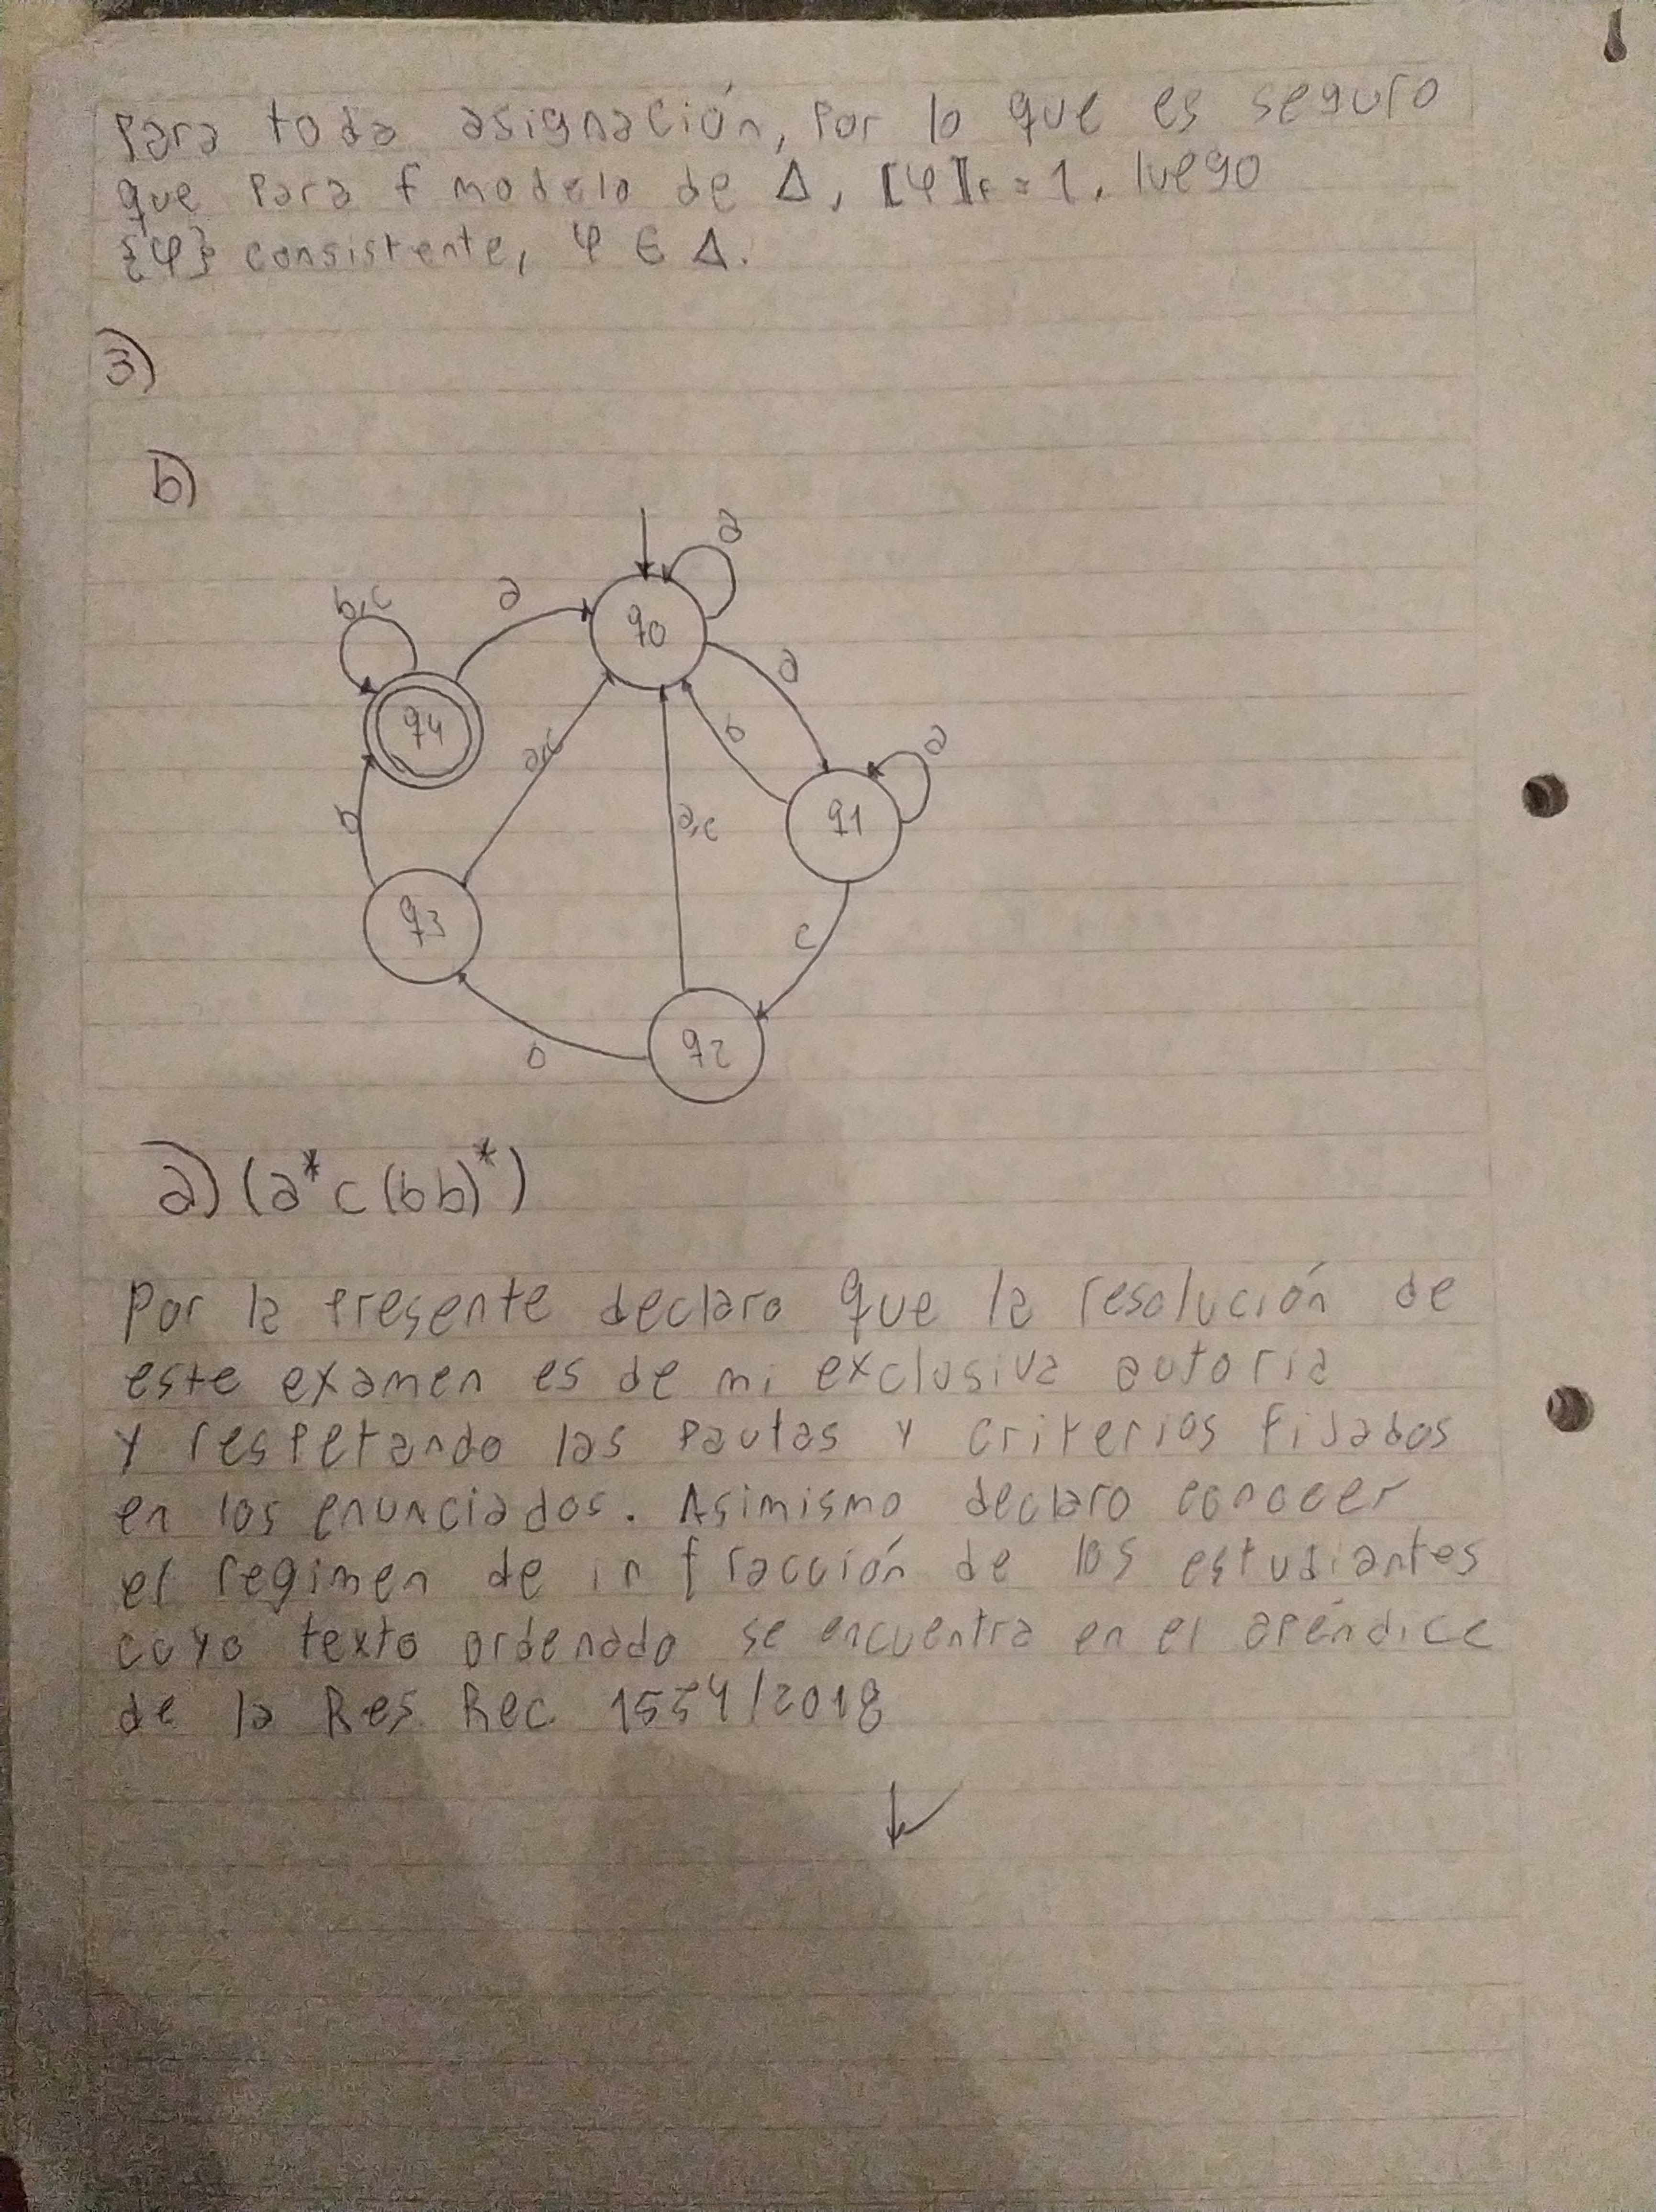 Para toda asignación, por lo que es seguro
que para f modelo de Δ, ⟦φ⟧f = 1. luego
{φ} consistente, φ ∈ Δ.
3)
b)
a
b,c
a
q0
a
q4
a,c
b
a
b
a,c
q1
q3
c
b
q2
a) (a*c(bb)*)
Por la presente declaro que la resolución de
este examen es de mi exclusiva autoria
y respetando las pautas y criterios fijados
en los enunciados. Asimismo declaro conocer
el regimen de infracción de los estudiantes
cuyo texto ordenado se encuentra en el apéndice
de la Res. Rec. 1554/2018